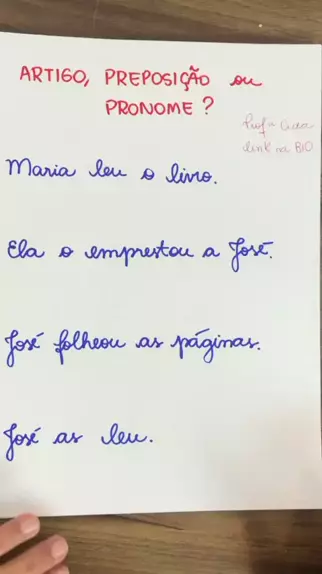 ARTIGO, PREPOSIÇÃO ou
PRONOME?
link na BIO
Maria leu o livro.
Ela o emprestou a José.
José folheou as páginas.
José as leu.